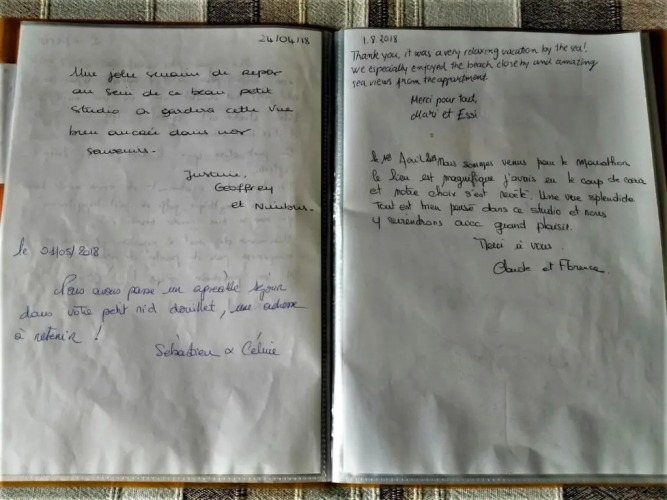 24/04/18
Une jolie semaine de repos
au sein de ce beau petit
studio on gardera cette vue
bien ancrée dans nos
souvenirs.
Justine,
Geoffrey
et Nimbus.
le 01/05/2018
Nous avons passé un agréable séjour
dans votre petit nid douillet, une adresse
à retenir !
Sébastien & Céline
1.8.2018
Thank you, it was a very relaxing vacation by the sea!
We especially enjoyed the beach close by and amazing
sea views from the appartment.
Merci pour tout,
Mari et Essi
le Août Nous sommes venus pour le marathon
le lieu est magnifique j'avais eu le coup de cœur
et notre choix s'est Une vue splendide
Tout est bien pensé dans ce studio et nous
y reviendrons avec grand plaisir.
Merci à vous.
Claude et Florence